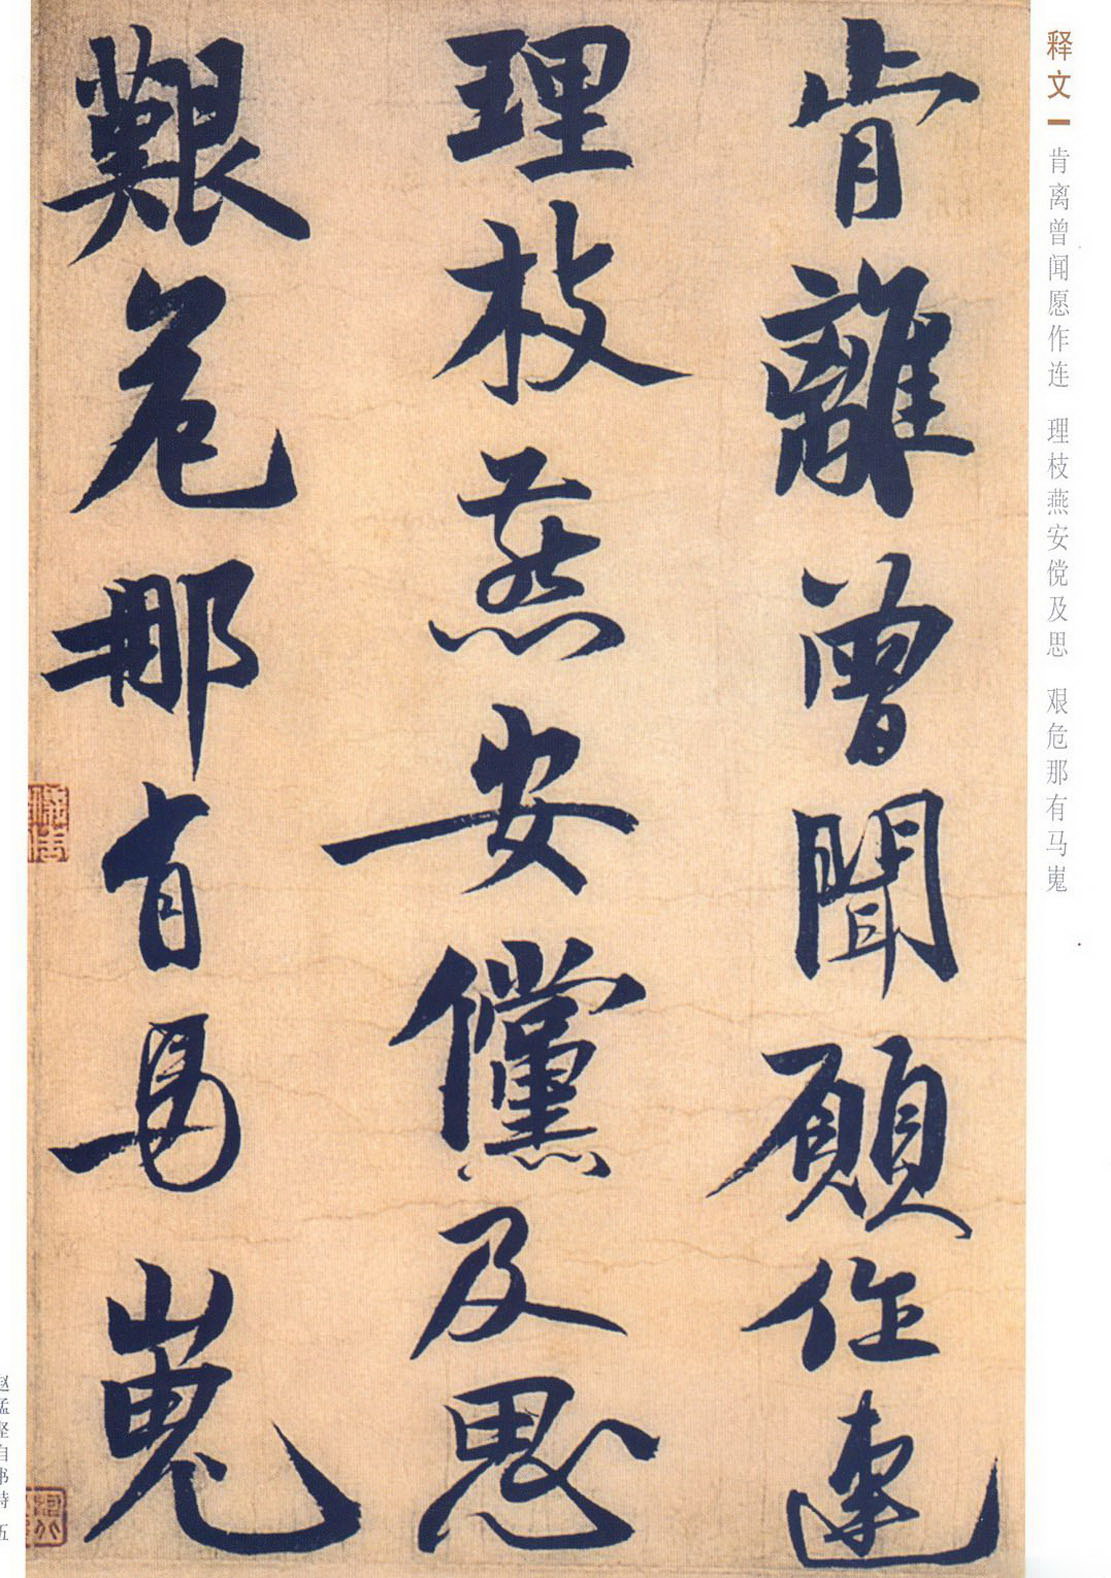 释文
肯离曾闻愿作连 理枝燕安傥及思 艰危那有马嵬
肯離曾聞願作連
理枝燕安儻及思
艱危那有馬嵬
赵孟坚自书诗 伍